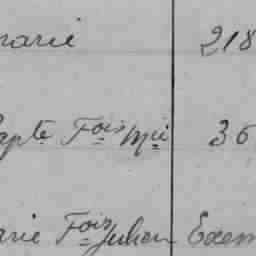 marie 218
Bapte Fois Mie 36
Marie Fois Julien Exem